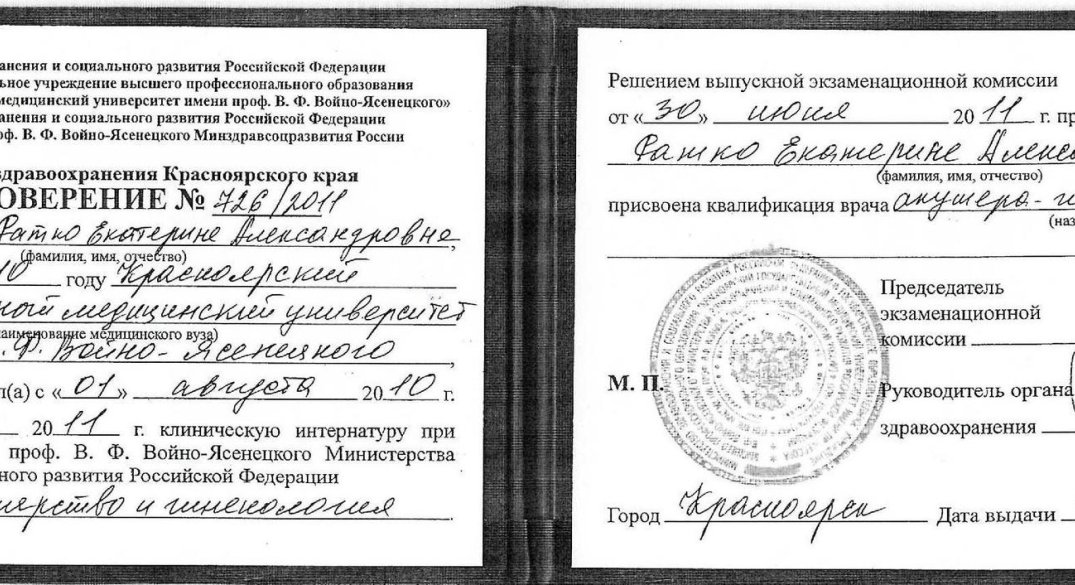 анения и социального развития Российской Федерации
ьное учреждение высшего профессионального образования
медицинский университет имени проф. В. Ф. Войно-Ясенецкого»
анения и социального развития Российской Федерации
оф. В. Ф. Войно-Ясенецкого Минздравсоцразвития России
здравоохранения Красноярского края
ОВЕРЕНИЕ № 726/2011
Ратко Екатерине Александровне,
(фамилия, имя, отчество)
10 году Красноярский
ной медицинский университет
наименование медицинского вуза)
.Ф. Войно-Ясенецкого
л(а) с «01» августа 2010 г.
2011 г. клиническую интернатуру при
проф. В. Ф. Войно-Ясенецкого Министерства
ного развития Российской Федерации
шерство и гинекология.
Решением выпускной экзаменационной комиссии
от «30» июня 2011 г. пр
Ратко Екатерине Алекса
(фамилия, имя, отчество)
присвоена квалификация врача акушера-ги
(наз
Председатель
экзаменационной
комиссии
М. П.
Руководитель органа
здравоохранения
Город Красноярск Дата выдачи